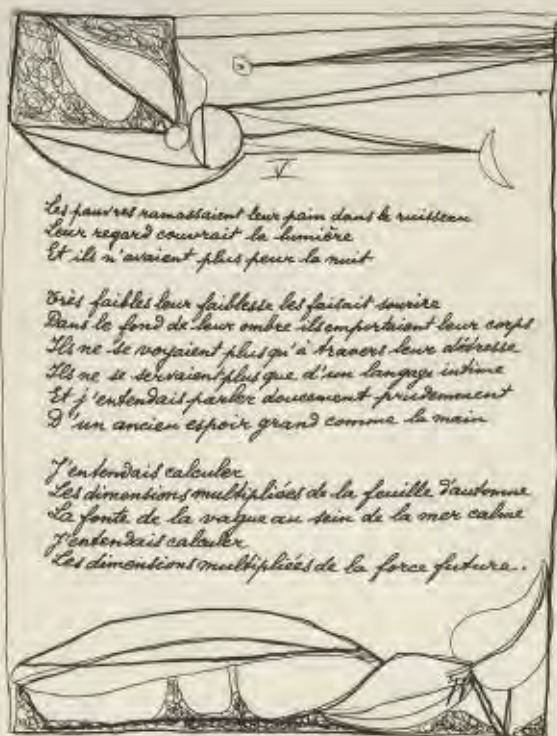 V
Les pauvres ramassaient leur pain dans le ruisseau
Leur regard couvrait la lumière
Et ils n'avaient plus peur la nuit
Très faibles leur faiblesse les faisait sourire
Dans le fond de leur ombre ils emportaient leur corps
Ils ne se voyaient plus qu'à travers leur détresse
Ils ne se servaient plus que d'un langage intime
Et j'entendais parler doucement prudemment
D'un ancien espoir grand comme la main
J'entendais calculer
Les dimensions multipliées de la feuille d'automne
La fonte de la vague au sein de la mer calme
J'entendais calculer
Les dimensions multipliées de la force future.